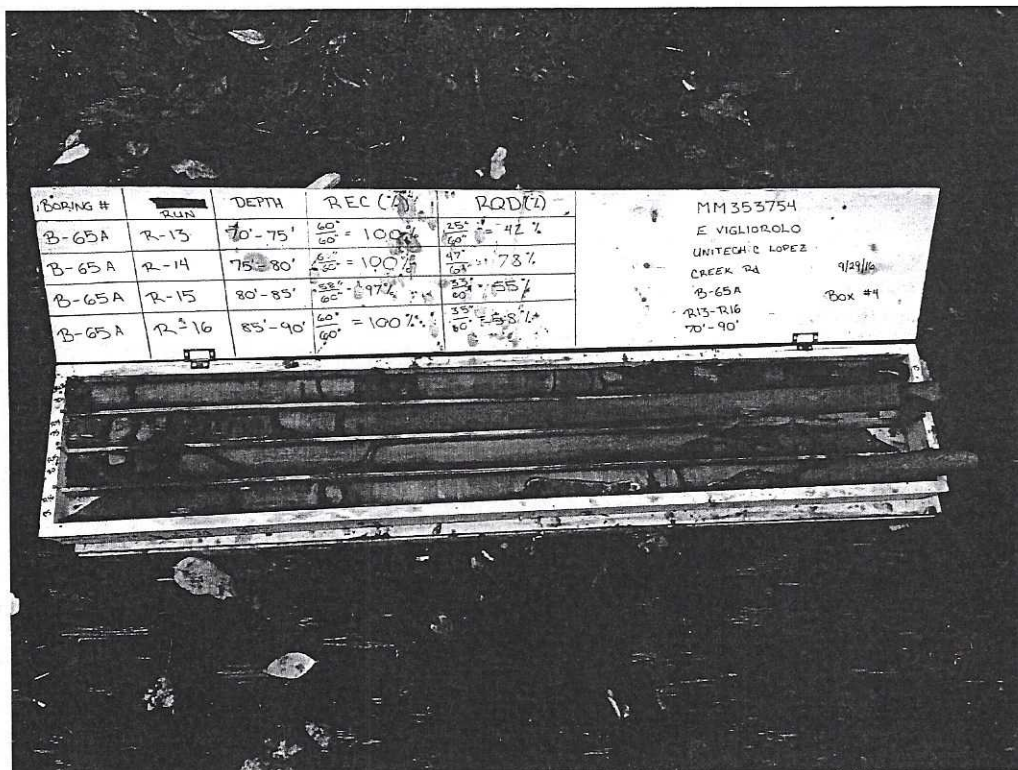 BORING # RUN DEPTH REC (%) RQD (%)
B-65A R-13 70'-75' 60"/60" = 100% 25"/60" = 42%
B-65A R-14 75'-80' 60" = 100% 47"/60" = 78%
B-65A R-15 80'-85' 58"/60" = 97% 33"/60" = 55%
B-65A R-16 85'-90' 60"/60" = 100% 35"/60" = 58%
MM353754
E VIGLIOROLO
UNITECH C LOPEZ
CREEK Rd 9/29/16
B-65A Box #4
R13-R16
70'-90'